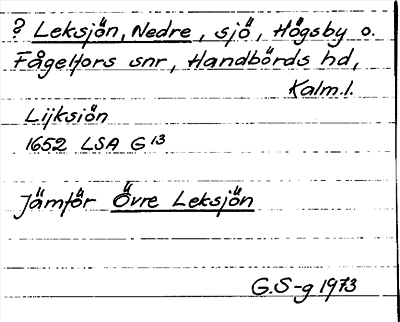 ? Leksjön, Nedre, sjö, Högsby o.
Fågelfors snr, Handbörds hd,
Kalm.l.
Lijksiön
1652 LSA G 13
Jämför Övre Leksjön
G.S-g 1973